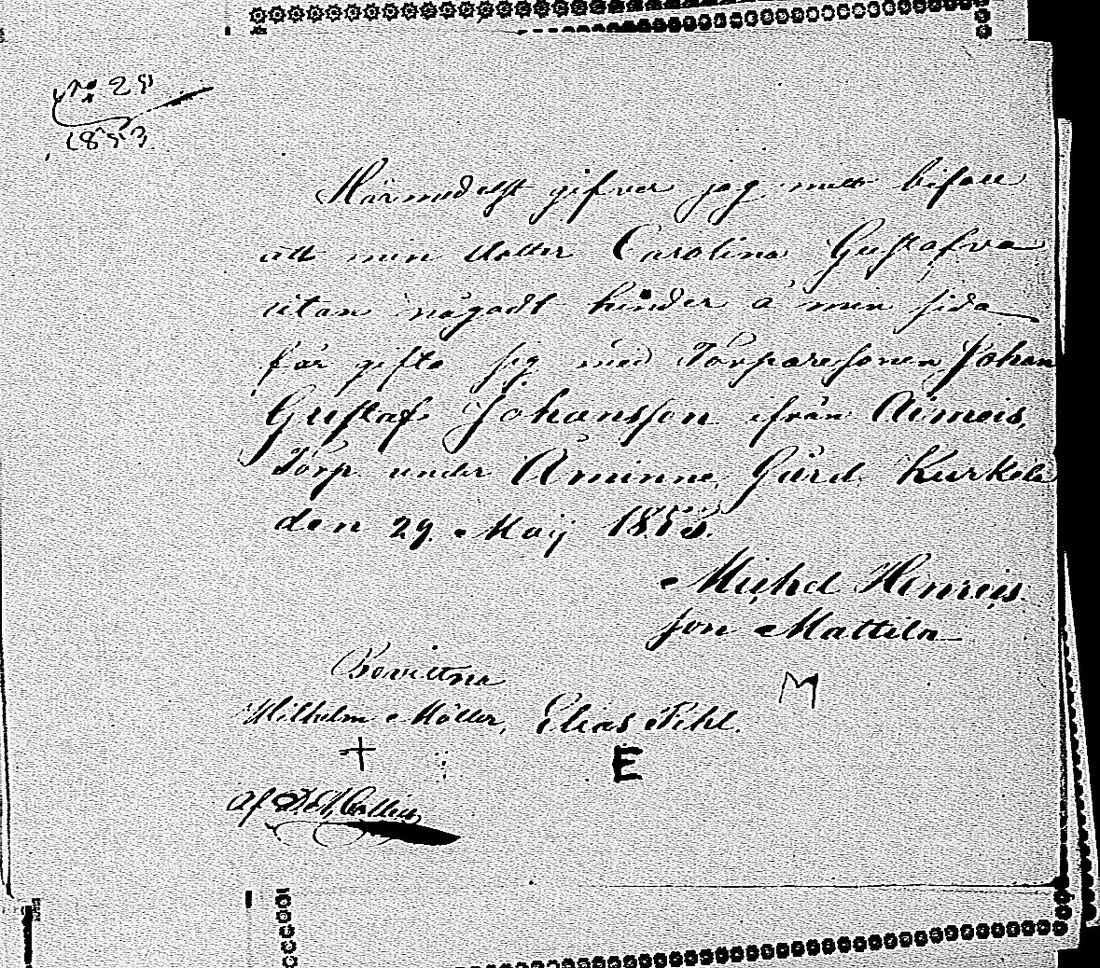 No 28
1853
Härmedelst gifver jag mitt bifall
att min dotter Carolina Gustafva
utan någodt hinder å min sida
får gifta sig med Torparesonen Johan
Gustaf Johansson ifrån Aimois
Torp under Åminne Gård Kurkela
den 29. Maij 1853.
Michel Henrics
son Mattila
M
Bevittna
Wilhelm Möller, Elias Pihl.
+ E
af D. A.